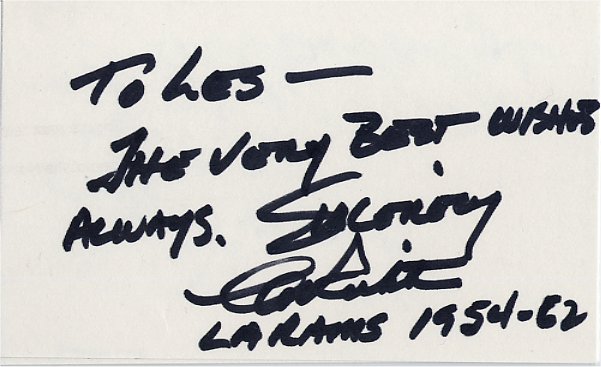 To Les —
The Very Best Wishes
Always. Sincerely
LA RAMS 1954-62